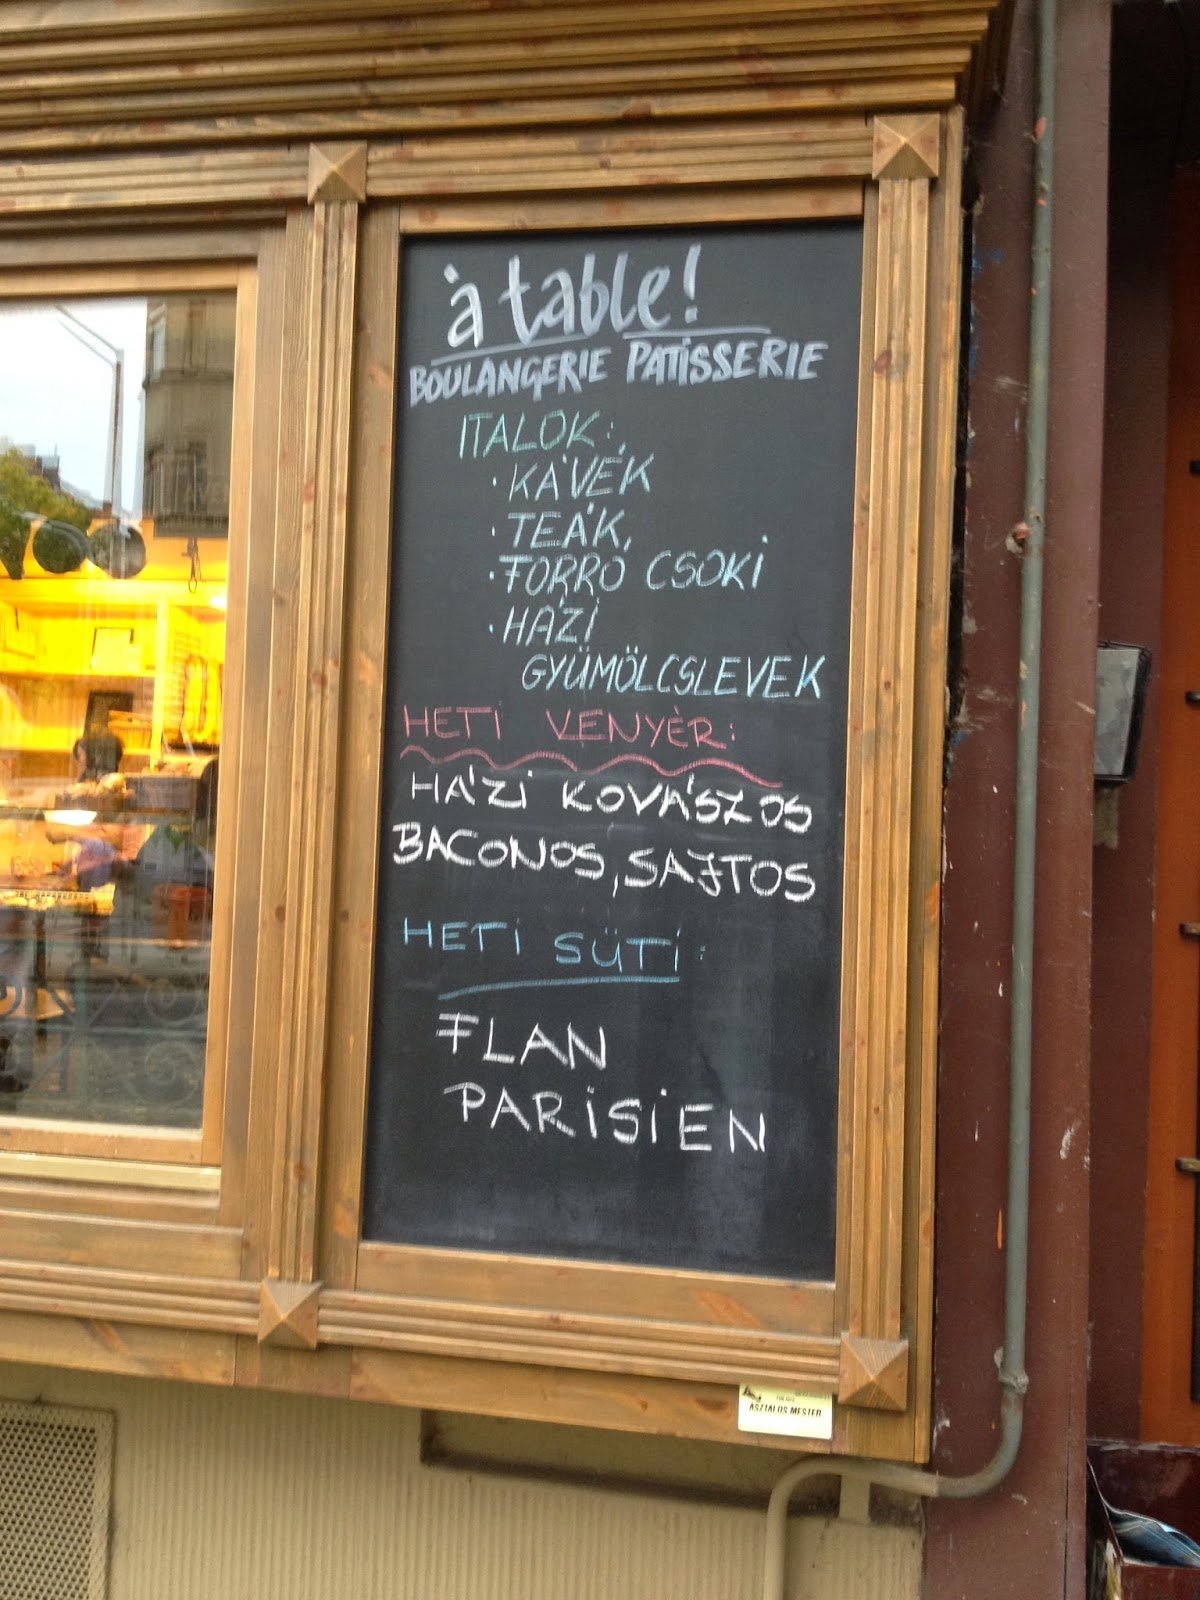 à table!
BOULANGERIE PATISSERIE
ITALOK:
· KÁVÉK
· TEÁK,
· FORRÓ CSOKI
· HÁZI
GYÜMÖLCSLEVEK
HETI KENYÉR:
HÁZI KOVÁSZOS
BACONOS, SAJTOS
HETI SÜTI:
FLAN
PARISIEN
ASZTALOS MESTER